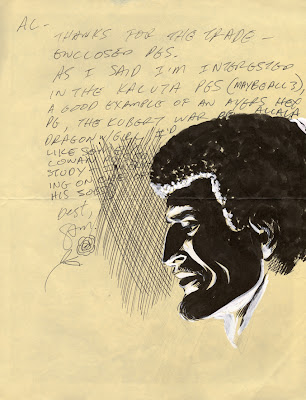 AL -
THANKS FOR THE TRADE -
ENCLOSED PGS.
AS I SAID I'M INTERESTED
IN THE KALUTA PGS (MAYBE ALL 3),
A GOOD EXAMPLE OF AN AYERS HEX
PG, THE KUBERT WAR PG, ALCALA
DRAGON W/GIRL. I'D
LIKE
COWAN
STUDY
ING ON
HIS
Best,